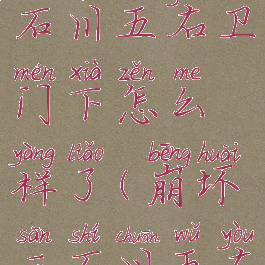 石川五右卫
mén xià zěn me
门下怎么
yàng liǎo bēng huài
样了(崩坏
sān shí chuān wǔ yòu